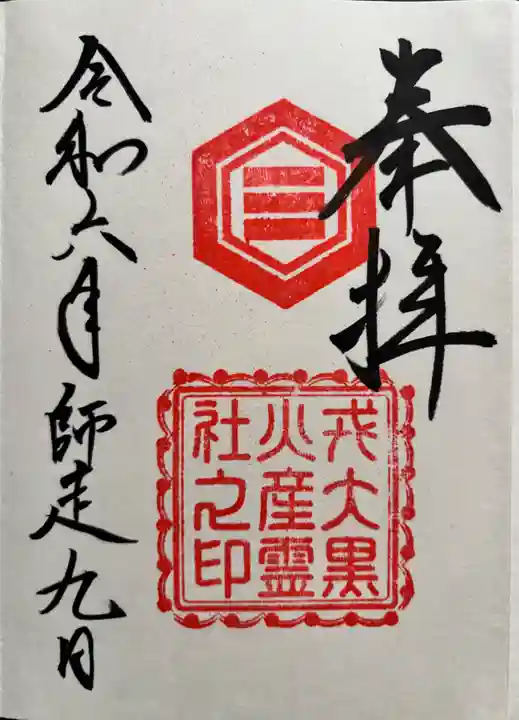 奉拝
三
戎大黒
火産霊
社之印
令和六年
師走九日